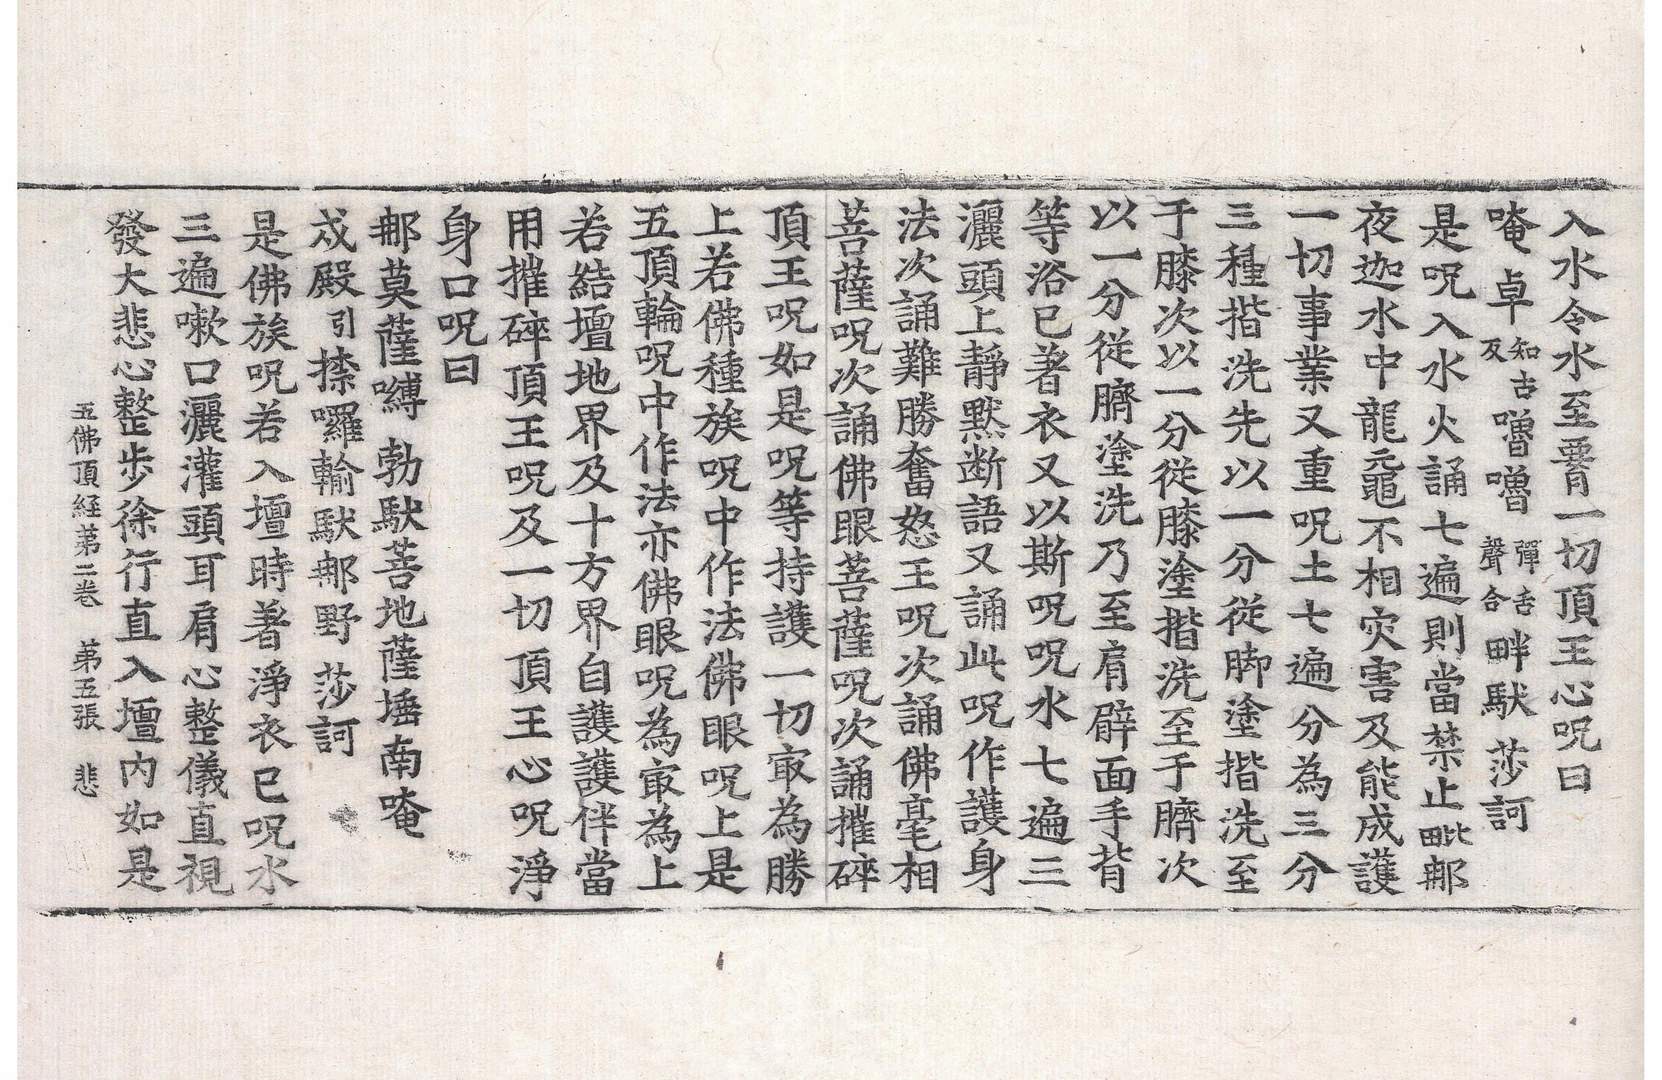 入水令水至臂一切頂王心呪曰
唵卓知古反嚕嚕彈舌聲合畔馱莎訶
是呪入水火誦七遍則當禁止毗那
夜迦水中龍黿不相灾害及能成護
一切事業又重呪土七遍分為三分
三種揩洗先以一分從脚塗揩洗至
于膝次以一分從膝塗揩洗至于臍次
以一分從臍塗洗乃至肩臂面手背
等浴已著衣又以斯呪呪水七遍三
灑頭上靜默断語又誦此呪作護身
法次誦難勝奮怒王呪次誦佛毫相
菩薩呪次誦佛眼菩薩呪次誦摧碎
頂王呪如是呪等持護一切㝡為勝
上若佛種族呪中作法佛眼呪上是
五頂輪呪中作法亦佛眼呪為㝡為上
若結壇地界及十方界自護護伴當
用摧碎頂王呪及一切頂王心呪淨
身口呪曰
那莫薩嚩勃馱菩地薩埵南唵
戍殿引㮈囉輸馱那野莎訶
是佛族呪若入壇時著淨衣已呪水
三遍嗽口灑灌頭耳肩心整儀直視
發大悲心整步徐行直入壇内如是
五佛頂経苐二巻 苐五張 悲